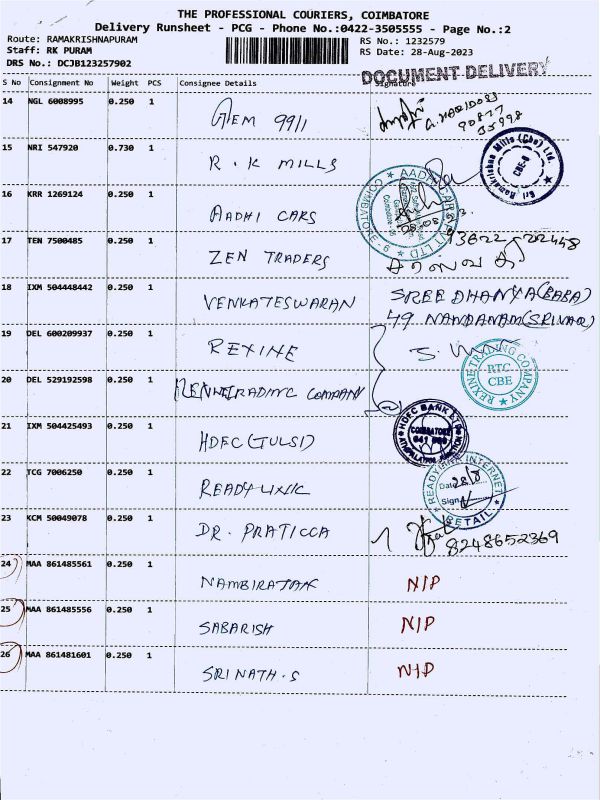 THE PROFESSIONAL COURIERS, COIMBATORE
Delivery Runsheet - PCG - Phone No.:0422-3505555 - Page No.:2
Route: RAMAKRISHNAPURAM
RS No.: 1232579
Staff: RK PURAM
RS Date: 28-Aug-2023
DRS No.: DCJB123257902
DOCUMENT DELIVERY
S No Consignment No Weight PCS Consignee Details Signature
14 NGL 6008995 0.250 1 GEM 9911
90877
35998
15 NRI 547920 0.730 1 R.K MILLS
Sri Ramakrishna Mills (Cbe) Ltd. CBE-6
16 KRR 1269124 0.250 1 AADHI CARS
AADHI CARS PVT LTD COIMBATORE-9
17 TEN 7500485 0.250 1 ZEN TRADERS
93622-22448
18 IXM 504448442 0.250 1 VENKATESWARAN SREE DHANYA (BABA)
49. NANDANAM (SRIVARI)
19 DEL 600209937 0.250 1 REXINE
REXINE TRADING COMPANY RTC CBE
20 DEL 529192598 0.250 1 TRADING COMPANY
21 IXM 504425493 0.250 1 HDFC (TULSI)
HDFC BANK LTD COIMBATORE 641
22 TCG 7006250 0.250 1 READYLINK
READYLINK INTERNET RETAIL
Date 28/8
Sign
23 KCM 50049078 0.250 1 DR. PRATICCA
8248652369
24 MAA 861485561 0.250 1 NAMBIRAJAN N/P
25 MAA 861485556 0.250 1 SABARISH N/P
26 MAA 861481601 0.250 1 SRINATH.S N/P